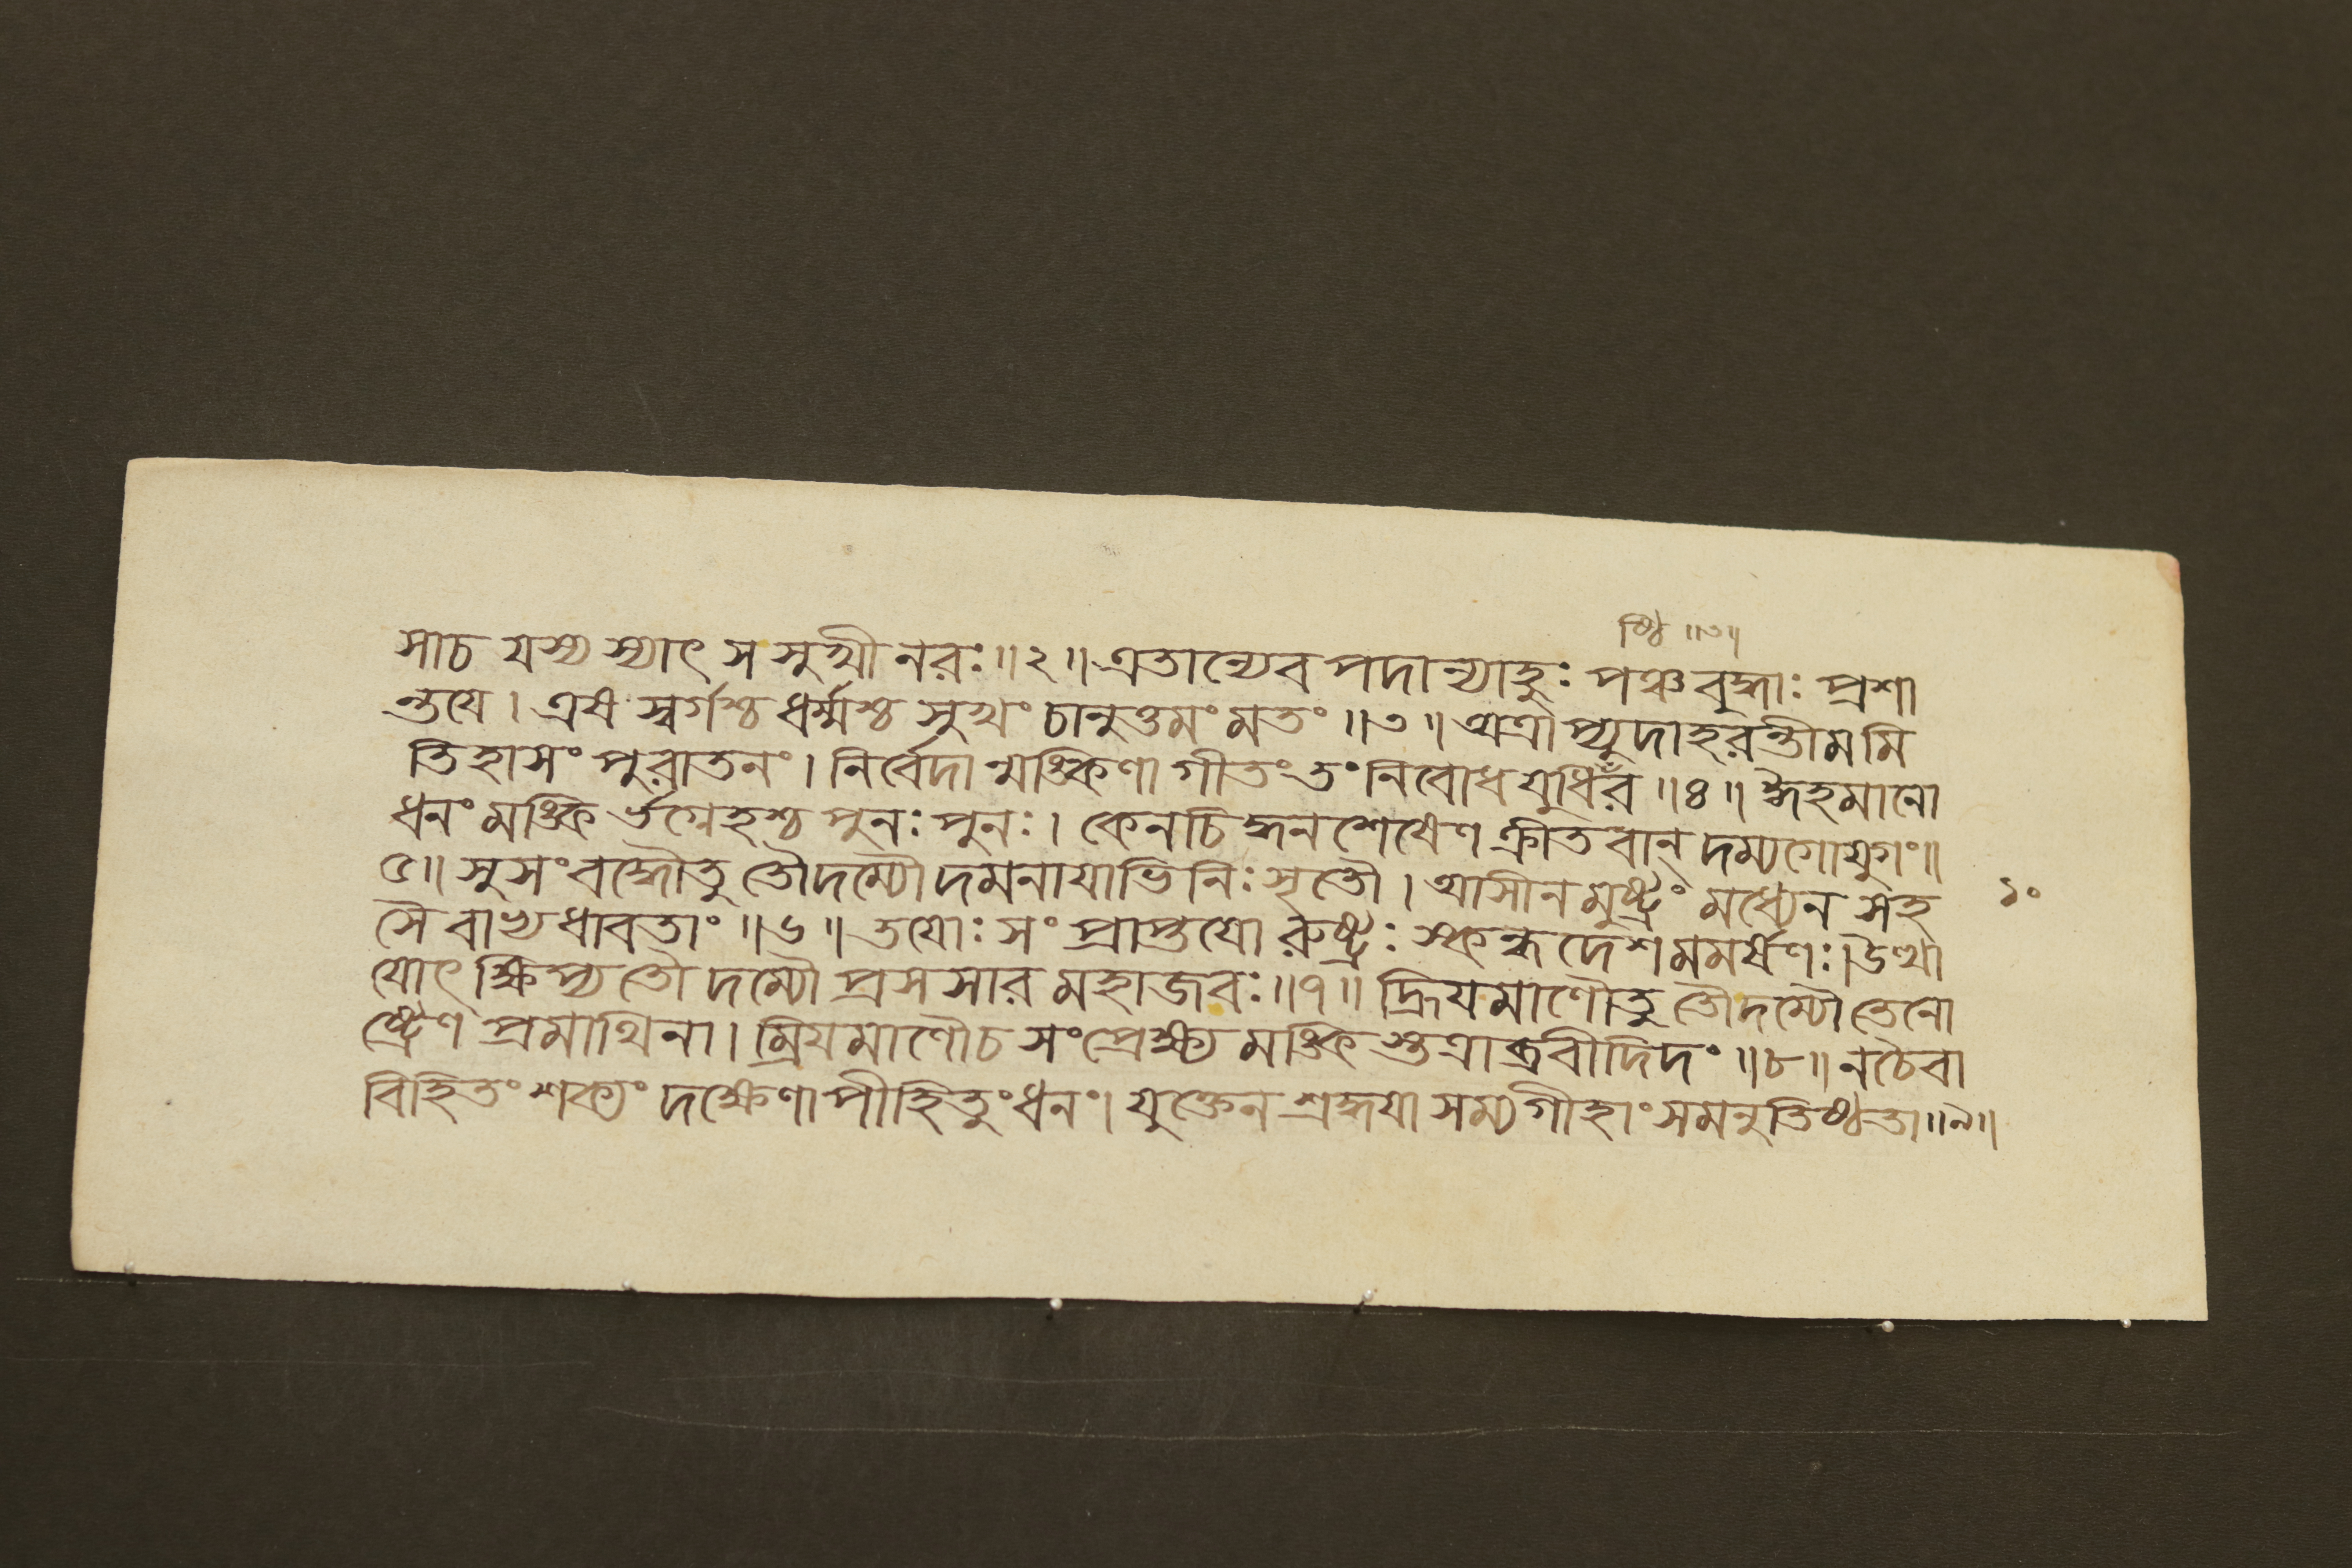 ষ্ঠি ॥৩॥
সাচ যস্য স্যাৎ স সুখী নরঃ॥২॥ এতান্যেব পদান্যাহুঃ পঞ্চবৃদ্ধাঃ প্রশা
ন্তয়ে। এষ স্বর্গশ্চ ধর্ম্মশ্চ সুখং চানুত্তমং মতং ॥৩॥ অত্রাপ্যুদাহরন্তীমমি
তিহাসং পুরাতনং। নির্বেদান্মঙ্কিণা গীতং তং নিবোধ যুধির ॥৪॥ ঈহমানো
ধনং মঙ্কির্ভগ্নেহশ্চ পুনঃ পুনঃ। কেনচিদ্ধনশেষেণ ক্রীতবান্ দম্যগোযুগং॥
৫॥ সুসংবদ্ধৌতু তৌদম্যৌ দমনাযাভিনিঃসৃতৌ। আসীনমুষ্ট্রং মধ্যেন সহ
১০
সৈবাভ্যধাবতাং ॥৬॥ তযোঃ সংপ্রাপ্তযোরুষ্ট্রঃ স্কন্ধদেশমমর্ষণঃ। উত্থা
যোৎক্ষিপ্য তৌ দম্যৌ প্রসসার মহাজবঃ॥৭॥ হ্রিযমাণৌতু তৌদম্যৌ তেনো
ষ্ট্রেণ প্রমাথিনা। ম্রিযমাণৌচ সংপ্রেক্ষ্য মঙ্কিস্তত্রাব্রবীদিদং ॥৮॥ নচৈবা
বিহিতং শক্যং দক্ষেণাপীহিতুং ধনং। যুক্তেন শ্রদ্ধযা সম্যগীহাং সমনুতিষ্ঠতা॥৯॥